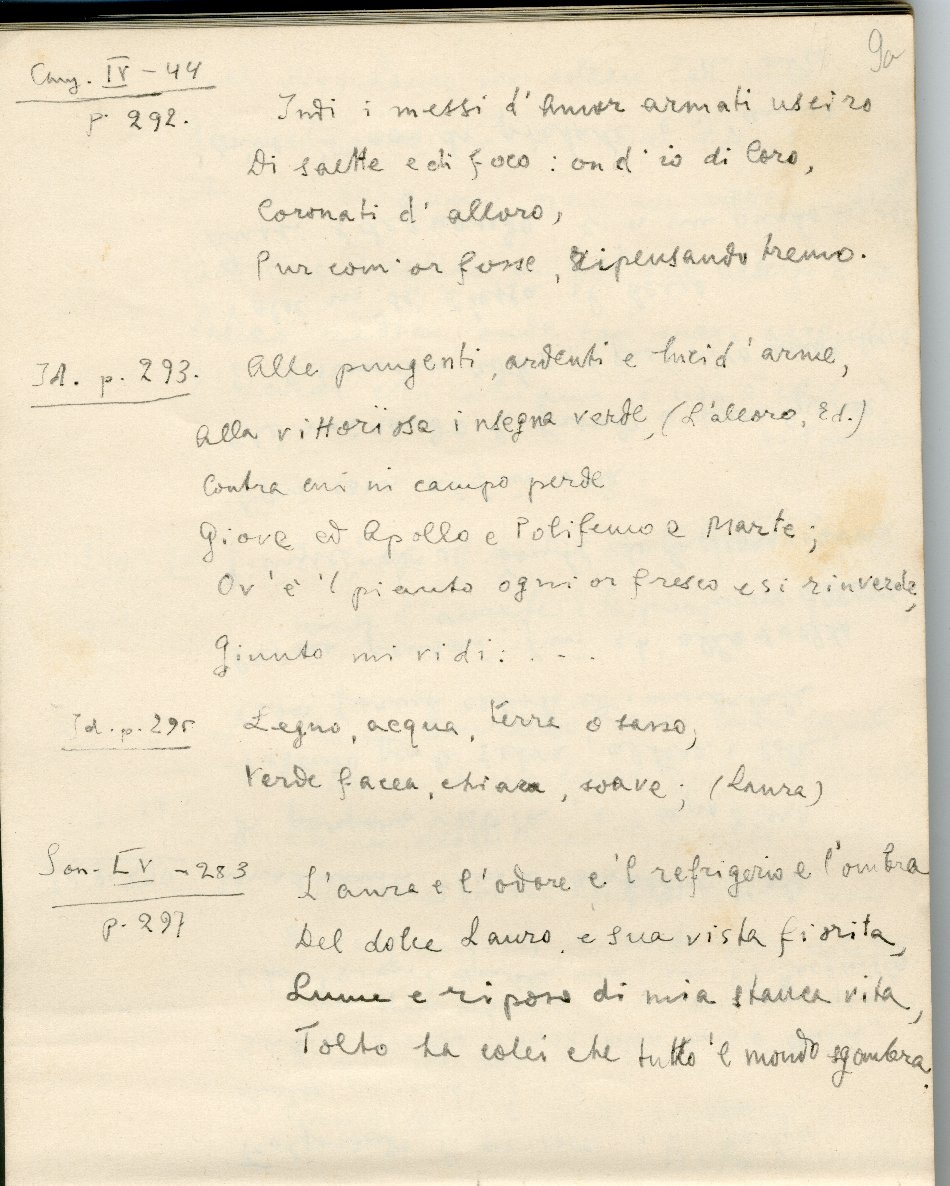 9a
Canz. IV - 44
p. 292.
Indi i messi d'Amor armati usciro
Di saette e di foco: ond'io di loro,
Coronati d'alloro,
Pur com'or fosse, ripensando tremo.
Id. p. 293.
Alle pungenti, ardenti e lucid'arme,
Alla vittorïosa insegna verde, (L'alloro, Ed.)
Contra cui in campo perde
Giove ed Apollo e Polifemo e Marte;
Ov'è 'l pianto ogni or fresco e si rinverde,
Giunto mi vidi: . - -
Id. p. 295
Legno, acqua, terra o sasso,
Verde facea, chiara, soave; (Laura)
Son. LV - 283
p. 297
L'aura e l'odore e 'l refrigerio e l'ombra
Del dolce Lauro, e sua vista fiorita,
Lume e riposo di mia stanca vita,
Tolto ha colei che tutto 'l mondo sgombra.